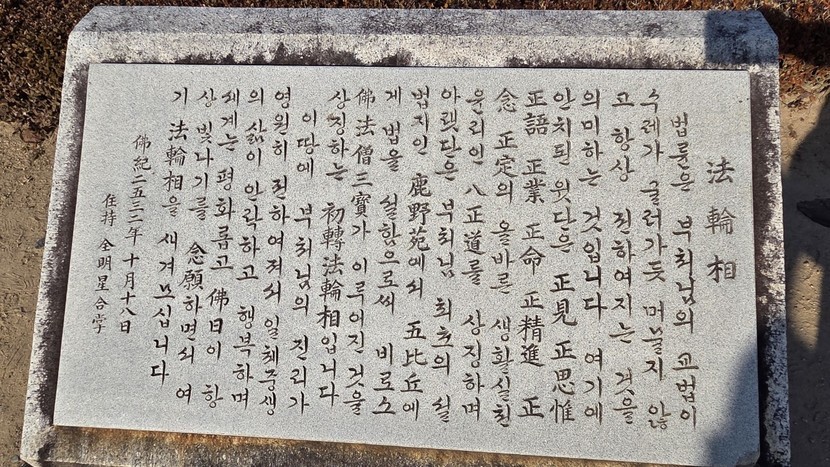 法輪相
법륜은 부처님의 교법이
수레가 굴러가듯 머물지 않
고 항상 전하여지는 것을
의미하는 것입니다 여기에
안치된 윗단은 正見 正思惟
正語 正業 正命 正精進 正
念 正定의 올바른 생활실천
윤리인 八正道를 상징하며
아랫단은 부처님 최초의 설
법지인 鹿野苑에서 五比丘에
게 법을 설함으로써 비로소
佛法僧三寶가 이루어진 것을
상징하는 初轉法輪相입니다
이 땅에 부처님의 진리가
영원히 전하여져서 일체중생
의 삶이 안락하고 행복하며
세계는 평화롭고 佛日이 항
상 빛나기를 念願하면서 여
기 法輪相을 새겨 모십니다
佛紀二五三二年 十月十八日
住持 全明星合掌